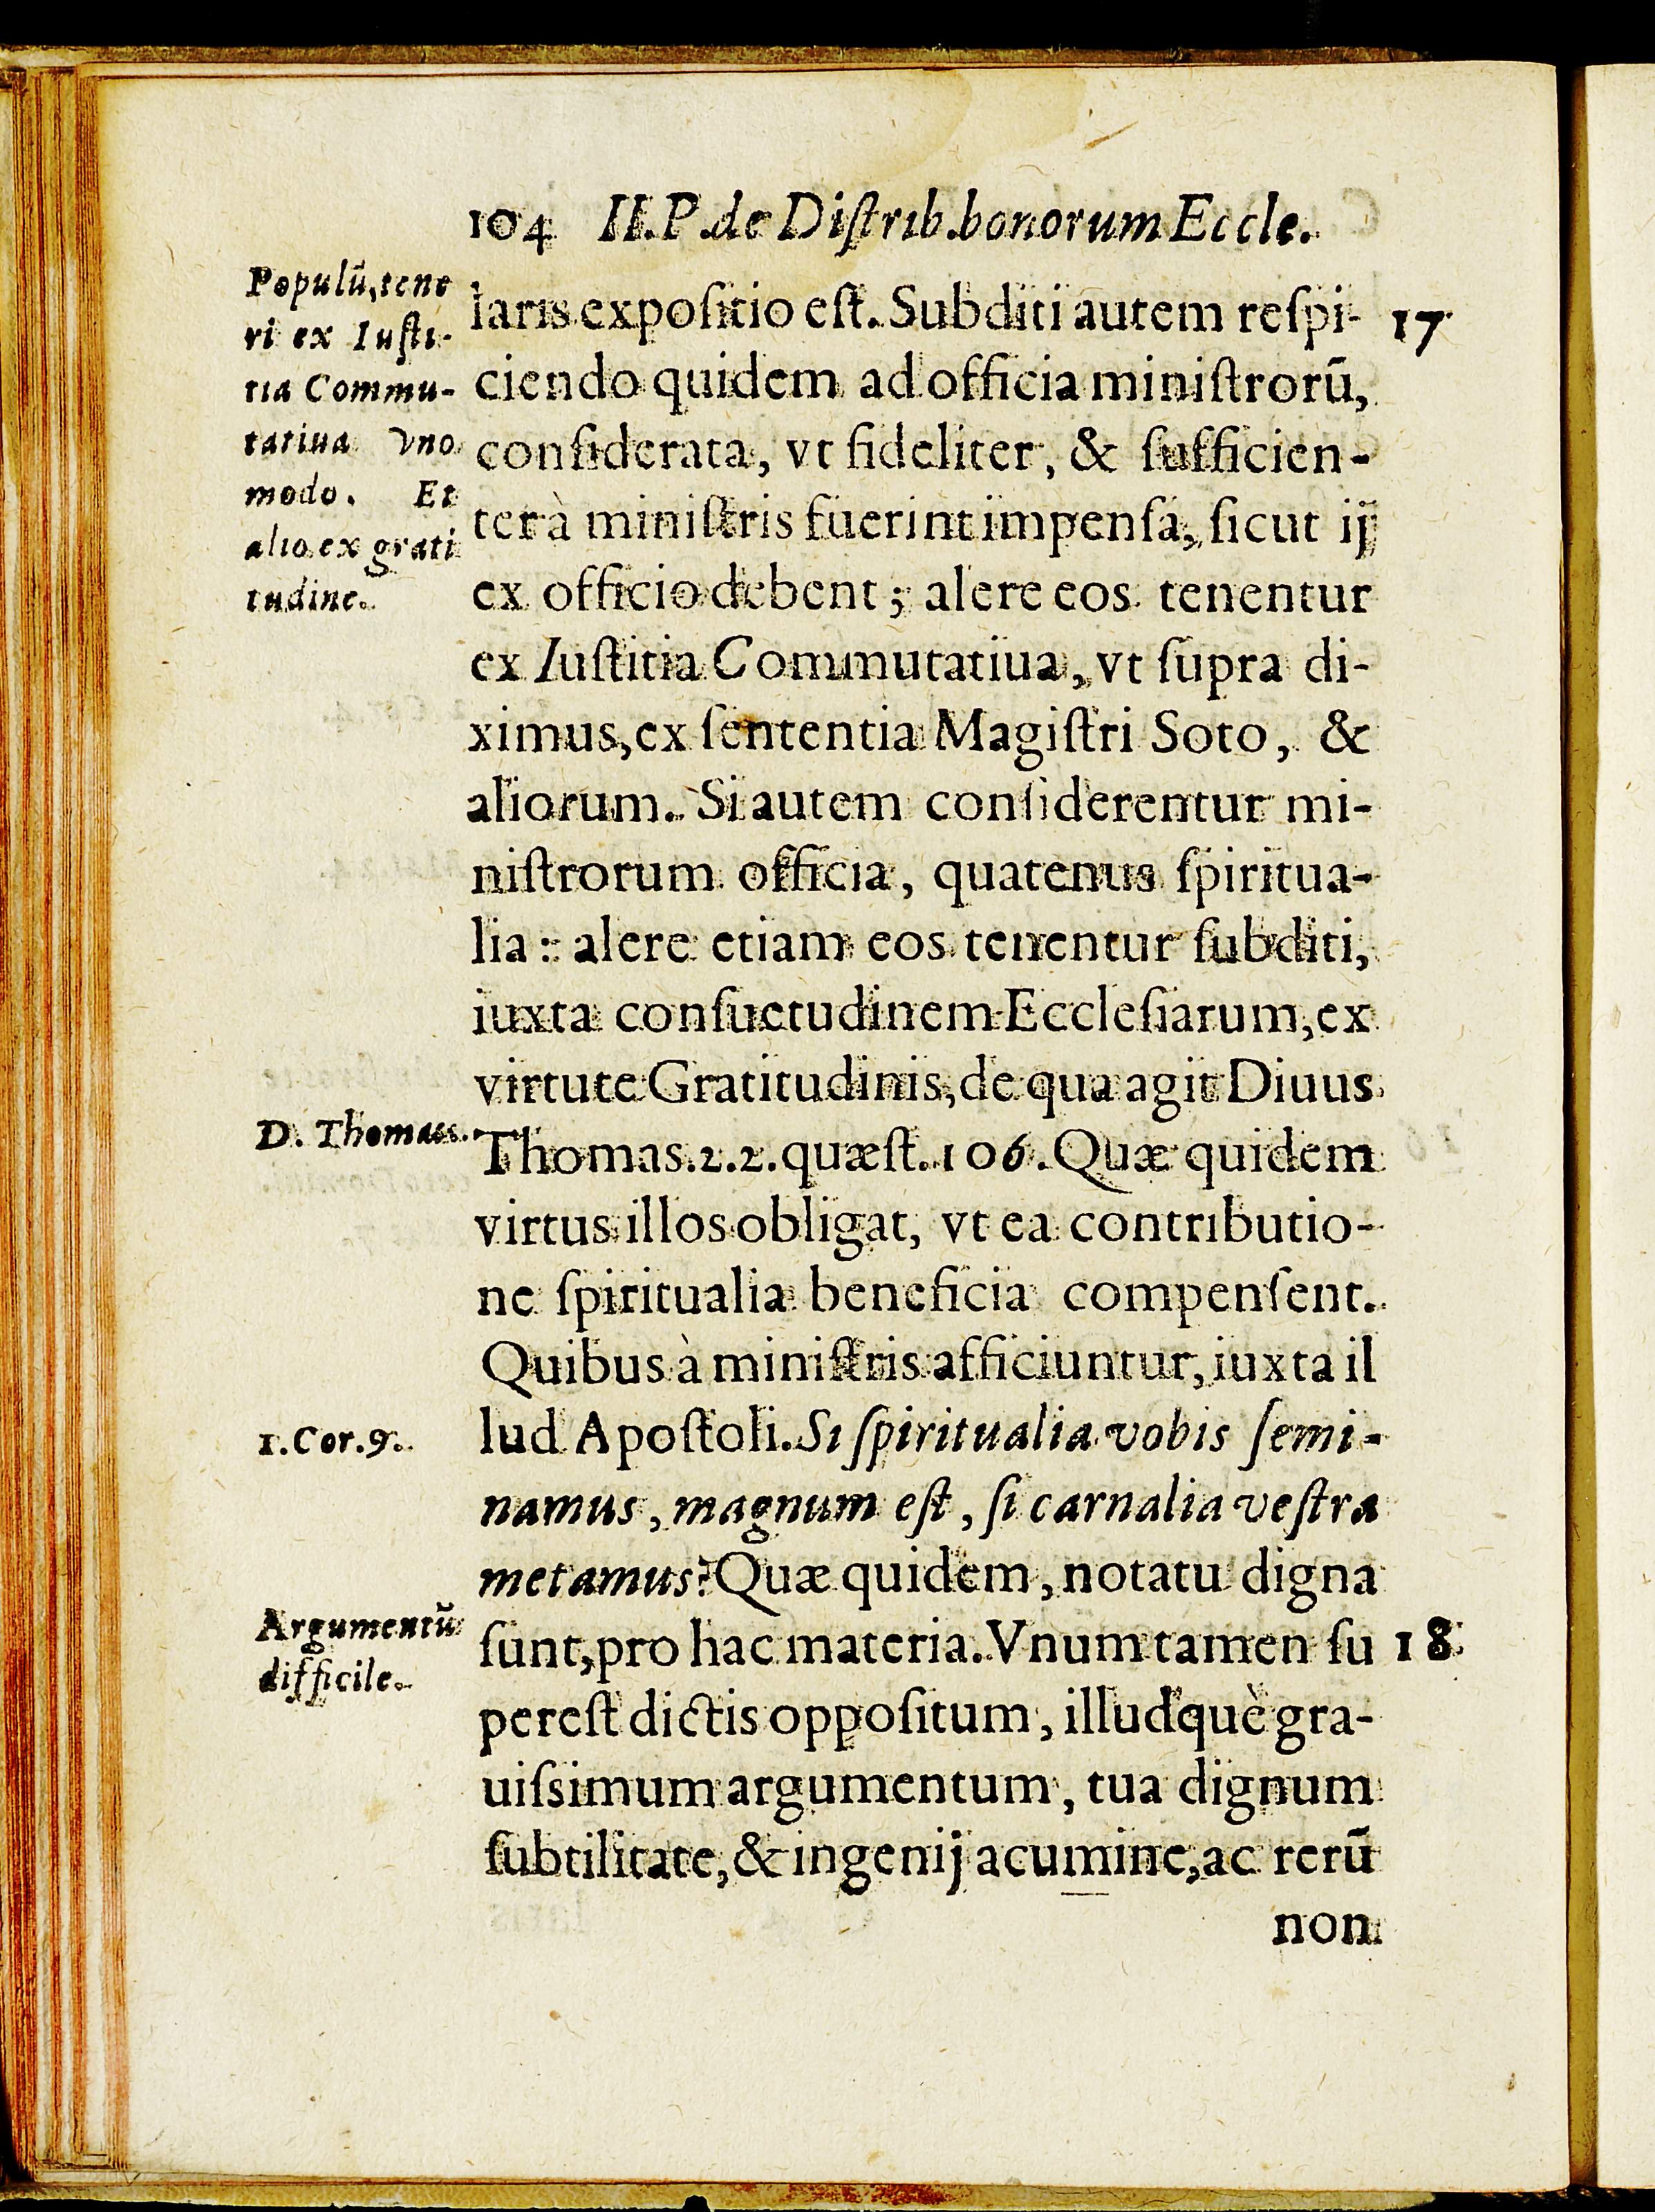 104 II.P.de Diſtrib.bonorum Eccle.
Populū,tene
ri ex Iuſti-
tia Commu-
tatiua vno
modo. Et
alio ex grati
tudine.
laris expoſitio eſt. Subditi autem reſpi- 17
ciendo quidem ad officia miniſtrorū,
conſiderata, vt fideliter, & ſufficien-
ter à miniſtris fuerint impenſa, ſicut ij
ex officio debent; alere eos tenentur
ex Iuſtitia Commutatiua, vt ſupra di-
ximus, ex ſententia Magiſtri Soto, &
aliorum. Si autem conſiderentur mi-
niſtrorum officia, quatenus ſpiritua-
lia: alere etiam eos tenentur ſubditi,
iuxta conſuetudinem Eccleſiarum, ex
virtute Gratitudinis, de qua agit Diuus
D. Thomas.
Thomas.2.2.quæſt.106.Quæ quidem
virtus illos obligat, vt ea contributio-
ne ſpiritualia beneficia compenſent.
Quibus à miniſtris afficiuntur, iuxta il
1.Cor.9.
lud Apoſtoli. Si ſpiritualia vobis ſemi-
namus, magnum eſt, ſi carnalia veſtra
metamus? Quæ quidem, notatu digna
Argumentū
difficile.
ſunt, pro hac materia. Vnum tamen ſu 18
pereſt dictis oppoſitum, illudquè gra-
uiſsimum argumentum, tua dignum
ſubtilitate, & ingenij acumine, ac rerū
non